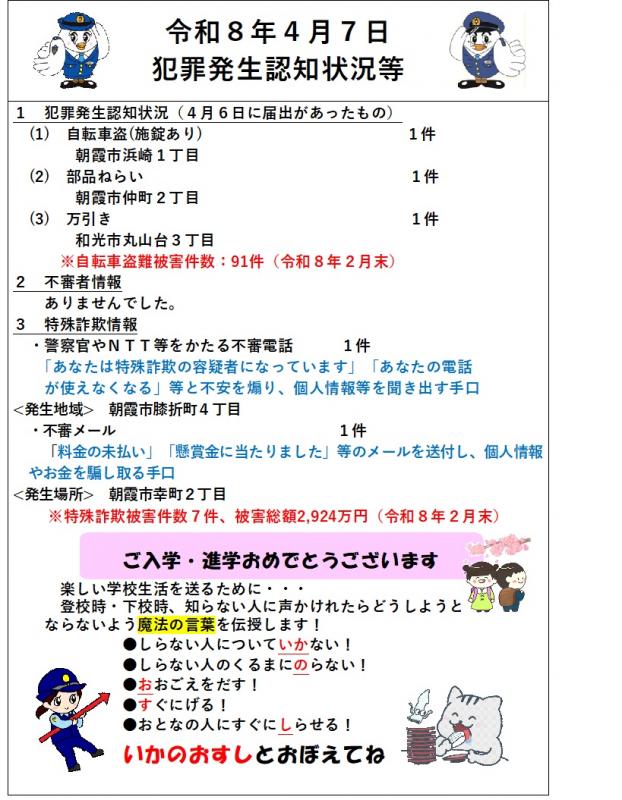 令和８年４月７日
犯罪発生認知状況等
１　犯罪発生認知状況（４月６日に届出があったもの）
(1)　自転車盗(施錠あり)　１件
朝霞市浜崎１丁目
(2)　部品ねらい　１件
朝霞市仲町２丁目
(3)　万引き　１件
和光市丸山台３丁目
※自転車盗難被害件数：91件（令和８年２月末）
２　不審者情報
ありませんでした。
３　特殊詐欺情報
・警察官やＮＴＴ等をかたる不審電話　１件
「あなたは特殊詐欺の容疑者になっています」「あなたの電話
が使えなくなる」等と不安を煽り、個人情報等を聞き出す手口
<発生地域>　朝霞市膝折町４丁目
・不審メール　１件
「料金の未払い」「懸賞金に当たりました」等のメールを送付し、個人情報
やお金を騙し取る手口
<発生場所>　朝霞市幸町２丁目
※特殊詐欺被害件数７件、被害総額2,924万円（令和８年２月末）
ご入学・進学おめでとうございます
楽しい学校生活を送るために・・・
登校時・下校時、知らない人に声かけれたらどうしようと
ならないよう魔法の言葉を伝授します！
●しらない人についていかない！
●しらない人のくるまにのらない！
●おおごえをだす！
●すぐにげる！
●おとなの人にすぐにしらせる！
いかのおすしとおぼえてね